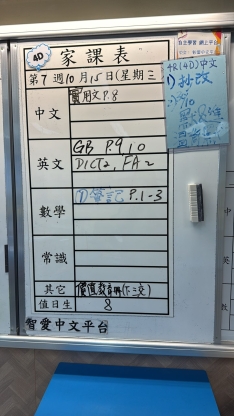 4D
家課表
第7週10月15日(星期三
中文
實用文P.8
英文
GB P.9,10
DICT2, FA2
數學
① 筆記 P.1-3
常識
其它
價值教育冊(下三交)
值日生
8
智愛中文平台
4R(4D)中文
1) 抄改